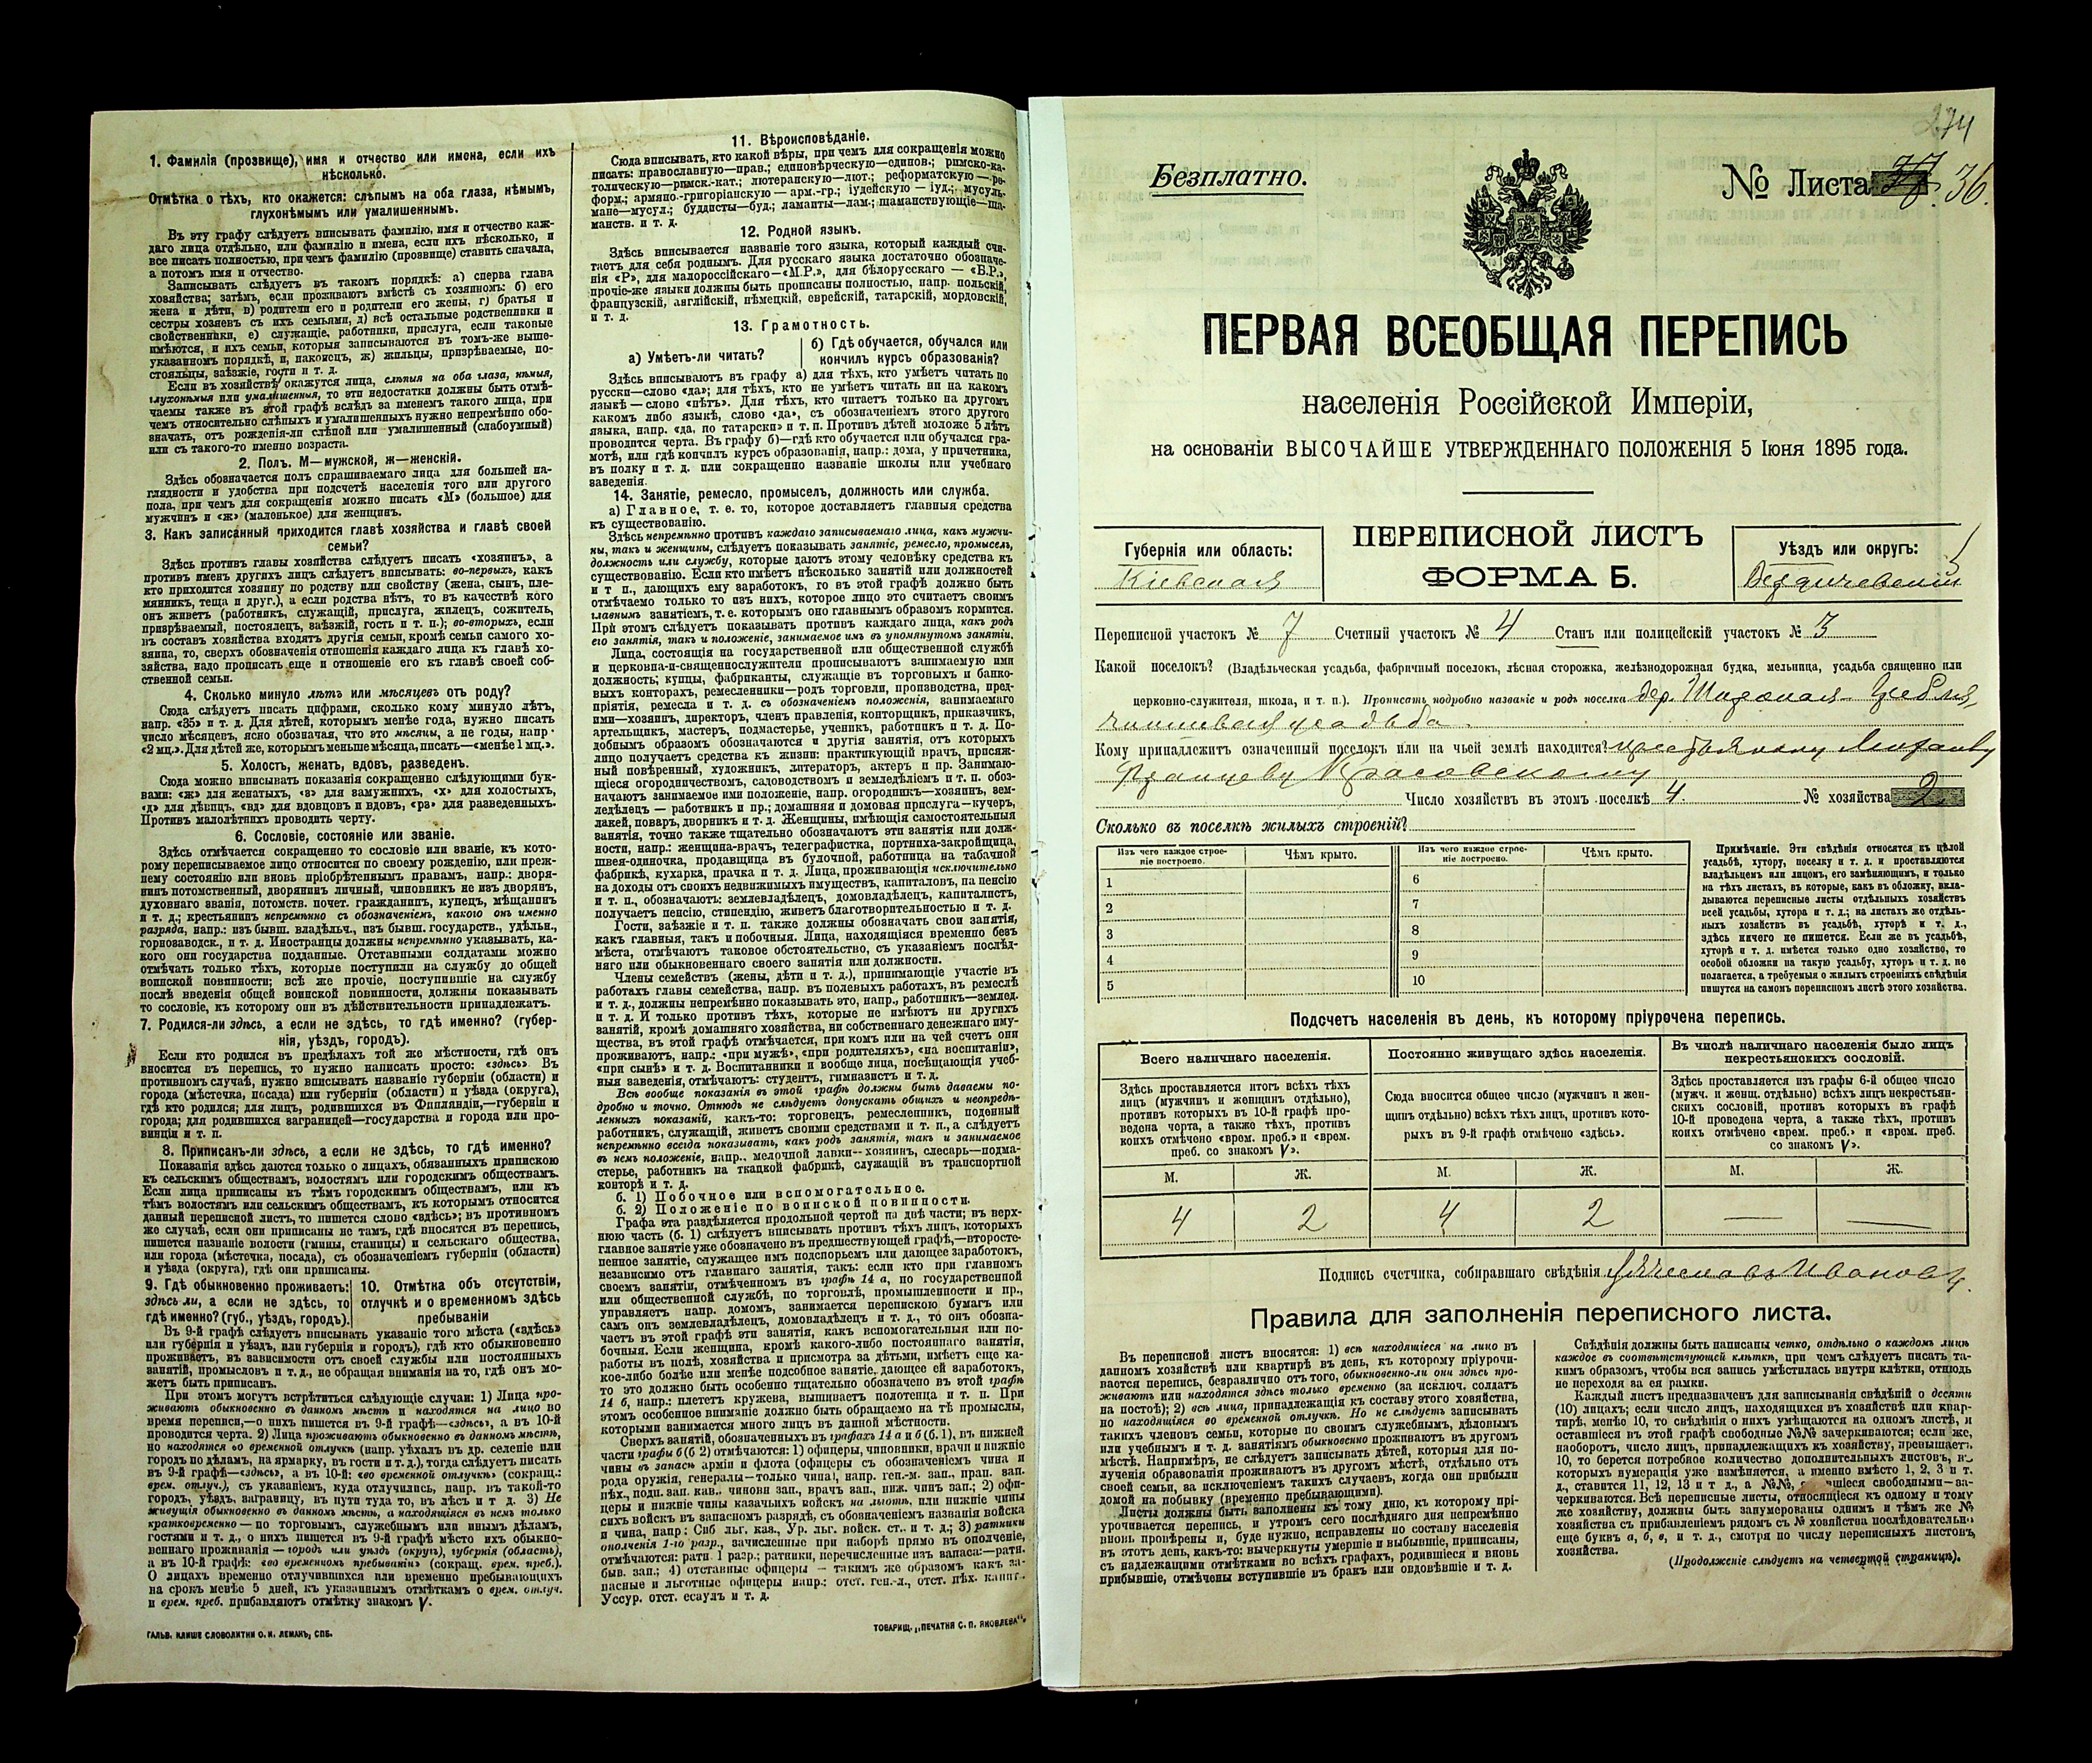 1. Фамилія (прозвище), имя и отчество или имена, если ихъ
нѣсколько.
Отмѣтка о тѣхъ, кто окажется: слѣпымъ на оба глаза, нѣмымъ,
глухонѣмымъ или умалишеннымъ.
Въ эту графу слѣдуетъ вписывать фамилію, имя и отчество каж-
даго лица отдѣльно, или фамилію и имена, если ихъ нѣсколько, и
все писать полностью, при чемъ фамилію (прозвище) ставить сначала,
а потомъ имя и отчество.
Записывать слѣдуетъ въ такомъ порядкѣ: а) сперва глава
хозяйства; затѣмъ, если проживаютъ вмѣстѣ съ хозяиномъ: б) его
жена и дѣти, в) родители его и родители его жены, г) братья и
сестры хозяевъ съ ихъ семьями, д) всѣ остальные родственники и
свойственники, е) служащіе, работники, прислуга, если таковые
имѣются, и ихъ семьи, которыя записываются въ томъ-же выше-
указанномъ порядкѣ, и, наконецъ, ж) жильцы, призрѣваемые, по-
стояльцы, заѣзжіе, гости и т. д.
Если въ хозяйствѣ окажутся лица, слѣпыя на оба глаза, нѣмыя,
глухонѣмыя или умалишенныя, то эти недостатки должны быть отмѣ-
чаемы также въ этой графѣ вслѣдъ за именемъ такого лица, при
чемъ относительно слѣпыхъ и умалишенныхъ нужно непремѣнно обо-
значать, отъ рожденія-ли слѣпой или умалишенный (слабоумный)
или съ такого-то именно возраста.
2. Полъ. М—мужской, ж—женскій.
Здѣсь обозначается полъ спрашиваемаго лица для большей на-
глядности и удобства при подсчетѣ населенія того или другого
пола, при чемъ для сокращенія можно писать «М» (большое) для
мужчинъ и «ж» (маленькое) для женщинъ.
3. Какъ записанный приходится главѣ хозяйства и главѣ своей
семьи?
Здѣсь противъ главы хозяйства слѣдуетъ писать «хозяинъ», а
противъ именъ другихъ лицъ слѣдуетъ вписывать: во-первыхъ, какъ
кто приходится хозяину по родству или свойству (жена, сынъ, пле-
мянникъ, теща и друг.), а если родства нѣтъ, то въ качествѣ кого
онъ живетъ (работникъ, служащій, прислуга, жилецъ, сожитель,
призрѣваемый, постоялецъ, заѣзжій, гость и т. п.); во-вторыхъ, если
въ составъ хозяйства входятъ другія семьи, кромѣ семьи самого хо-
зяина, то, сверхъ обозначенія отношенія каждаго лица къ главѣ хо-
зяйства, надо прописать еще и отношеніе его къ главѣ своей соб-
ственной семьи.
4. Сколько минуло лѣтъ или мѣсяцевъ отъ роду?
Сюда слѣдуетъ писать цифрами, сколько кому минуло лѣтъ,
напр. «35» и т. д. Для дѣтей, которымъ менѣе года, нужно писать
число мѣсяцевъ, ясно обозначая, что это мѣсяцы, а не годы, напр.
«2 мц.». Для дѣтей же, которымъ меньше мѣсяца, писать—«менѣе 1 мц.».
5. Холостъ, женатъ, вдовъ, разведенъ.
Сюда можно вписывать показанія сокращенно слѣдующими бук-
вами: «ж» для женатыхъ, «з» для замужнихъ, «х» для холостыхъ,
«д» для дѣвицъ, «вд» для вдовцовъ и вдовъ, «рз» для разведенныхъ.
Противъ малолѣтнихъ проводить черту.
6. Сословіе, состояніе или званіе.
Здѣсь отмѣчается сокращенно то сословіе или званіе, къ кото-
рому переписываемое лицо относится по своему рожденію, или преж-
нему состоянію или вновь пріобрѣтеннымъ правамъ, напр.: дворя-
нинъ потомственный, дворянинъ личный, чиновникъ не изъ дворянъ,
духовнаго званія, потомств. почет. гражданинъ, купецъ, мѣщанинъ
и т. д.; крестьянинъ непремѣнно съ обозначеніемъ, какого онъ именно
разряда, напр.: изъ бывш. владѣльч., изъ бывш. государств., удѣльн.,
горнозаводск., и т. д. Иностранцы должны непремѣнно указывать, ка-
кого они государства подданные. Отставными солдатами можно
отмѣчать только тѣхъ, которые поступили на службу до общей
воинской повинности; всѣ же прочіе, поступившіе на службу
послѣ введенія общей воинской повинности, должны показывать
то сословіе, къ которому они въ дѣйствительности принадлежатъ.
7. Родился-ли здѣсь, а если не здѣсь, то гдѣ именно? (губер-
нія, уѣздъ, городъ).
Если кто родился въ предѣлахъ той же мѣстности, гдѣ онъ
вносится въ перепись, то нужно написать просто: «здѣсь». Въ
противномъ случаѣ, нужно вписывать названіе губерніи (области) и
города (мѣстечка, посада) или губерніи (области) и уѣзда (округа),
гдѣ кто родился; для лицъ, родившихся въ Финляндіи,—губерніи и
города; для родившихся заграницей—государства и города или про-
винціи и т. п.
8. Приписанъ-ли здѣсь, а если не здѣсь, то гдѣ именно?
Показанія здѣсь даются только о лицахъ, обязанныхъ припискою
къ сельскимъ обществамъ, волостямъ или городскимъ обществамъ.
Если лица приписаны къ тѣмъ городскимъ обществамъ, или къ
тѣмъ волостямъ или сельскимъ обществамъ, къ которымъ относится
данный переписной листъ, то пишется слово «здѣсь»; въ противномъ
же случаѣ, если они приписаны не тамъ, гдѣ вносятся въ перепись,
пишется названіе волости (гмины, станицы) и сельскаго общества,
или города (мѣстечка, посада), съ обозначеніемъ губерніи (области)
и уѣзда (округа), гдѣ они приписаны.
9. Гдѣ обыкновенно проживаетъ:
здѣсь ли, а если не здѣсь, то
гдѣ именно? (губ., уѣздъ, городъ).
10. Отмѣтка объ отсутствіи,
отлучкѣ и о временномъ здѣсь
пребываніи
Въ 9-й графѣ слѣдуетъ вписывать указаніе того мѣста («здѣсь»
или губернія и уѣздъ, или губернія и городъ), гдѣ кто обыкновенно
проживаетъ, въ зависимости отъ своей службы или постоянныхъ
занятій, промысловъ и т. д., не обращая вниманія на то, гдѣ онъ мо-
жетъ быть приписанъ.
При этомъ могутъ встрѣтиться слѣдующіе случаи: 1) Лица про-
живаютъ обыкновенно въ данномъ мѣстѣ и находятся на лицо во
время переписи,—о нихъ пишется въ 9-й графѣ—«здѣсь», а въ 10-й
проводится черта. 2) Лица проживаютъ обыкновенно въ данномъ мѣстѣ,
но находятся во временной отлучкѣ (напр. уѣхалъ въ др. селеніе или
городъ по дѣламъ, на ярмарку, въ гости и т. д.), тогда слѣдуетъ писать
въ 9-й графѣ—«здѣсь», а въ 10-й: «во временной отлучкѣ» (сокращ.:
врем. отлуч.), съ указаніемъ, куда отлучились, напр. въ такой-то
городъ, уѣздъ, заграницу, въ пути туда то, въ лѣсъ и т д. 3) Не
живущія обыкновенно въ данномъ мѣстѣ, а находящіяся въ немъ только
кратковременно — по торговымъ, служебнымъ или инымъ дѣламъ,
гостями и т. д., о нихъ пишется въ 9-й графѣ мѣсто ихъ обыкно-
веннаго проживанія — городъ или уѣздъ (округъ), губернія (область),
а въ 10-й графѣ: «во временномъ пребываніи» (сокращ. врем. преб.).
О лицахъ временно отлучившихся или временно пребывающихъ
на срокъ менѣе 5 дней, къ указаннымъ отмѣткамъ о врем. отлуч.
и врем. преб. прибавляютъ отмѣтку знакомъ V.
ГАЛЬВ. КЛИШЕ СЛОВОЛИТНИ О. И. ЛЕМАНЪ, СПБ.
11. Вѣроисповѣданіе.
Сюда вписывать, кто какой вѣры, при чемъ для сокращенія можно
писать: православную—прав.; единовѣрческую—единов.; римско-ка-
толическую—римск.-кат.; лютеранскую—лют.; реформатскую—ре-
форм.; армяно.-григоріанскую — арм.-гр.; іудейскую — іуд.; мусуль-
мане—мусул.; буддисты—буд.; ламаиты—лам.; шаманствующіе—ша-
манств. и т. д.
12. Родной языкъ.
Здѣсь вписывается названіе того языка, который каждый счи-
таетъ для себя роднымъ. Для русскаго языка достаточно обозначе-
нія «Р», для малороссійскаго—«М.Р.», для бѣлорусскаго — «Б.Р.»,
прочіе-же языки должны быть прописаны полностью, напр. польскій,
французскій, англійскій, нѣмецкій, еврейскій, татарскій, мордовскій,
и т. д.
13. Грамотность.
а) Умѣетъ-ли читать?
б) Гдѣ обучается, обучался или
кончилъ курсъ образованія?
Здѣсь вписываютъ въ графу а) для тѣхъ, кто умѣетъ читать по
русски—слово «да»; для тѣхъ, кто не умѣетъ читать ни на какомъ
языкѣ — слово «нѣтъ». Для тѣхъ, кто читаетъ только на другомъ
какомъ либо языкѣ, слово «да», съ обозначеніемъ этого другого
языка, напр. «да, по татарски» и т. п. Противъ дѣтей моложе 5 лѣтъ
проводится черта. Въ графу б)—гдѣ кто обучается или обучался гра-
мотѣ, или гдѣ кончилъ курсъ образованія, напр.: дома, у причетника,
въ полку и т. д. или сокращенно названіе школы или учебнаго
заведенія.
14. Занятіе, ремесло, промыселъ, должность или служба.
а) Главное, т. е. то, которое доставляетъ главныя средства
къ существованію.
Здѣсь непремѣнно противъ каждаго записываемаго лица, какъ мужчи-
ны, такъ и женщины, слѣдуетъ показывать занятіе, ремесло, промыселъ,
должность или службу, которые даютъ этому человѣку средства къ
существованію. Если кто имѣетъ нѣсколько занятій или должностей
и т п., дающихъ ему заработокъ, то въ этой графѣ должно быть
отмѣчаемо только то изъ нихъ, которое лицо это считаетъ своимъ
главнымъ занятіемъ, т. е. которымъ оно главнымъ образомъ кормится.
При этомъ слѣдуетъ показывать противъ каждаго лица, какъ родъ
его занятія, такъ и положеніе, занимаемое имъ въ упомянутомъ занятіи.
Лица, состоящія на государственной или общественной службѣ
и церковно-и-священнослужители прописываютъ занимаемую ими
должность; купцы, фабриканты, служащіе въ торговыхъ и банко-
выхъ конторахъ, ремесленники—родъ торговли, производства, пред-
пріятія, ремесла и т. д. съ обозначеніемъ положенія, занимаемаго
ими—хозяинъ, директоръ, членъ правленія, конторщикъ, приказчикъ,
артельщикъ, мастеръ, подмастерье, ученикъ, работникъ и т. д. По-
добнымъ образомъ обозначаются и другія занятія, отъ которыхъ
лицо получаетъ средства къ жизни: практикующій врачъ, присяж-
ный повѣренный, художникъ, литераторъ, актеръ и пр. Занимаю-
щіеся огородничествомъ, садоводствомъ и земледѣліемъ и т. п. обоз-
начаютъ занимаемое ими положеніе, напр. огородникъ—хозяинъ, зем-
ледѣлецъ — работникъ и пр.; домашняя и домовая прислуга—кучеръ,
лакей, поваръ, дворникъ и т. д. Женщины, имѣющія самостоятельныя
занятія, точно также тщательно обозначаютъ эти занятія или долж-
ности, напр.: женщина-врачъ, телеграфистка, портниха-закройщица,
швея-одиночка, продавщица въ булочной, работница на табачной
фабрикѣ, кухарка, прачка и т. д. Лица, проживающія исключительно
на доходы отъ своихъ недвижимыхъ имуществъ, капиталовъ, на пенсію
и т. п., обозначаютъ: землевладѣлецъ, домовладѣлецъ, капиталистъ,
получаетъ пенсію, стипендію, живетъ благотворительностью и т. д.
Гости, заѣзжіе и т. п. также должны обозначать свои занятія,
какъ главныя, такъ и побочныя. Лица, находящіяся временно безъ
мѣста, отмѣчаютъ таковое обстоятельство, съ указаніемъ послѣд-
няго или обыкновеннаго своего занятія или должности.
Члены семействъ (жены, дѣти и т. д.), принимающіе участіе въ
работахъ главы семейства, напр. въ полевыхъ работахъ, въ ремеслѣ
и т. д., должны непремѣнно показывать это, напр., работникъ—землед.
и т. д. И только противъ тѣхъ, которые не имѣютъ ни другихъ
занятій, кромѣ домашняго хозяйства, ни собственнаго денежнаго иму-
щества, въ этой графѣ отмѣчается, при комъ или на чей счетъ они
проживаютъ, напр.: «при мужѣ», «при родителяхъ», «на воспитаніи»,
«при сынѣ» и т. д. Воспитанники и вообще лица, посѣщающія учеб-
ныя заведенія, отмѣчаютъ: студентъ, гимназистъ и т. д.
Всѣ вообще показанія въ этой графѣ должны быть даваемы по-
дробно и точно. Отнюдь не слѣдуетъ допускать общихъ и неопредѣ-
ленныхъ показаній, какъ-то: торговецъ, ремесленникъ, поденный
работникъ, служащій, живетъ своими средствами и т. п., а слѣдуетъ
непремѣнно всегда показывать, какъ родъ занятія, такъ и занимаемое
въ немъ положеніе, напр., мелочной лавки—хозяинъ, слесарь—подма-
стерье, работникъ на ткацкой фабрикѣ, служащій въ транспортной
конторѣ и т. д.
б. 1) Побочное или вспомогательное.
б. 2) Положеніе по воинской повинности.
Графа эта раздѣляется продольной чертой на двѣ части; въ верх-
нюю часть (б. 1) слѣдуетъ вписывать противъ тѣхъ лицъ, которыхъ
главное занятіе уже обозначено въ предшествующей графѣ,—второсте-
пенное занятіе, служащее имъ подспорьемъ или дающее заработокъ,
независимо отъ главнаго занятія, такъ: если кто при главномъ
своемъ занятіи, отмѣченномъ въ графѣ 14 а, по государственной
или общественной службѣ, по торговлѣ, промышленности и пр.,
управляетъ напр. домомъ, занимается перепискою бумагъ или
самъ онъ землевладѣлецъ, домовладѣлецъ и т. д., то онъ обозна-
чаетъ въ этой графѣ эти занятія, какъ вспомогательныя или по-
бочныя. Если женщина, кромѣ какого-либо постояннаго занятія,
работы въ полѣ, хозяйства и присмотра за дѣтьми, имѣетъ еще ка-
кое-либо болѣе или менѣе подсобное занятіе, дающее ей заработокъ,
то это должно быть особенно тщательно обозначено въ этой графѣ
14 б, напр.: плететъ кружева, вышиваетъ полотенца и т. п. При
этомъ особенное вниманіе должно быть обращаемо на тѣ промыслы,
которыми занимается много лицъ въ данной мѣстности.
Сверхъ занятій, обозначенныхъ въ графахъ 14 а и б (б. 1), въ нижней
части графы б (б 2) отмѣчаются: 1) офицеры, чиновники, врачи и нижніе
чины въ запасѣ арміи и флота (офицеры съ обозначеніемъ чина и
рода оружія, генералы—только чина), напр. ген.-м. зап., прап. зап.
пѣх., подп. зап. кав.. чиновн зап., врачъ зап., ниж. чинъ зап.; 2) офи-
церы и нижніе чины казачьихъ войскъ на льготѣ, или нижніе чины
сихъ войскъ въ запасномъ разрядѣ, съ обозначеніемъ названія войска
и чина, напр: Снб льг. каз., Ур. льг. войск. ст.. и т. д.; 3) ратники
ополченія 1-го разр., зачисленные при наборѣ прямо въ ополченіе,
отмѣчаются: ратн. 1 разр.; ратники, перечисленные изъ запаса:—ратн.
быв. зап.; 4) отставные офицеры — такимъ же образомъ какъ за-
пасные и льготные офицеры напр.: отст. ген.-л., отст. пѣх. капит.
Уссур. отст. есаулъ и т. д.
ТОВАРИЩ. „ПЕЧАТНЯ С. П. ЯКОВЛЕВА“.
274
Безплатно.
№ Листа 36.
ПЕРВАЯ ВСЕОБЩАЯ ПЕРЕПИСЬ
населенія Россійской Имперіи,
на основаніи ВЫСОЧАЙШЕ УТВЕРЖДЕННАГО ПОЛОЖЕНІЯ 5 Іюня 1895 года.
Губернія или область:
Кіевская
ПЕРЕПИСНОЙ ЛИСТЪ
ФОРМА Б.
Уѣздъ или округъ:
Бердичевскій
Переписной участокъ № 7 Счетный участокъ № 4 Станъ или полицейскій участокъ № 3
Какой поселокъ? (Владѣльческая усадьба, фабричный поселокъ, лѣсная сторожка, желѣзнодорожная будка, мельница, усадьба священно или
церковно-служителя, школа, и т. п.). Прописать подробно названіе и родъ поселка дер. Широкая Гребля,
чиншевая усадьба.
Кому принадлежитъ означенный поселокъ или на чьей землѣ находится? крестьянину
Францеву Красовскому
Число хозяйствъ въ этомъ поселкѣ 4. № хозяйства 2.
Сколько въ поселкѣ жилыхъ строеній?
Изъ чего каждое строе-
ніе построено.
Чѣмъ крыто.
Изъ чего каждое строе-
ніе построено.
Чѣмъ крыто.
1 6
2 7
3 8
4 9
5 10
Примѣчаніе. Эти свѣдѣнія относятся къ цѣлой
усадьбѣ, хутору, поселку и т. д. и проставляются
владѣльцемъ или лицомъ, его замѣняющимъ, и только
на тѣхъ листахъ, въ которые, какъ въ обложку, вкла-
дываются переписные листы отдѣльныхъ хозяйствъ
всей усадьбы, хутора и т. д.; на листахъ же отдѣль-
ныхъ хозяйствъ въ усадьбѣ, хуторѣ и т. д.,
здѣсь ничего не пишется. Если же въ усадьбѣ,
хуторѣ и т. д. имѣется только одно хозяйство, то
особой обложки на такую усадьбу, хуторъ и т. д. не
полагается, а требуемыя о жилыхъ строеніяхъ свѣдѣнія
пишутся на самомъ переписномъ листѣ этого хозяйства.
Подсчетъ населенія въ день, къ которому пріурочена перепись.
Всего наличнаго населенія.
Постоянно живущаго здѣсь населенія.
Въ числѣ наличнаго населенія было лицъ
некрестьянскихъ сословій.
Здѣсь проставляется итогъ всѣхъ тѣхъ
лицъ (мужчинъ и женщинъ отдѣльно),
противъ которыхъ въ 10-й графѣ про-
ведена черта, а также тѣхъ, противъ
коихъ отмѣчено «врем. преб.» и «врем.
преб. со знакомъ V».
Сюда вносится общее число (мужчинъ и жен-
щинъ отдѣльно) всѣхъ тѣхъ лицъ, противъ кото-
рыхъ въ 9-й графѣ отмѣчено «здѣсь».
Здѣсь проставляется изъ графы 6-й общее число
(мужч. и женщ. отдѣльно) всѣхъ лицъ некрестьян-
скихъ сословій, противъ которыхъ въ графѣ
10-й проведена черта, а также тѣхъ, противъ
коихъ отмѣчено «врем. преб.» и «врем. преб.
со знакомъ V».
М. Ж. М. Ж. М. Ж.
4 2 4 2 — —
Подпись счетчика, собиравшаго свѣдѣнія Вячеславъ Иванов
Правила для заполненія переписного листа.
Въ переписной листъ вносятся: 1) всѣ находящіеся на лицо въ
данномъ хозяйствѣ или квартирѣ въ день, къ которому пріурочи-
вается перепись, безразлично отъ того, обыкновенно-ли они здѣсь про-
живаютъ или находятся здѣсь только временно (за исключ. солдатъ
на постоѣ); 2) всѣ лица, принадлежащія къ составу этого хозяйства,
но находящіяся во временной отлучкѣ. Но не слѣдуетъ записывать
такихъ членовъ семьи, которые по своимъ служебнымъ, дѣловымъ
или учебнымъ и т. д. занятіямъ обыкновенно проживаютъ въ другомъ
мѣстѣ. Напримѣръ, не слѣдуетъ записывать дѣтей, которыя для по-
лученія образованія проживаютъ въ другомъ мѣстѣ, отдѣльно отъ
своей семьи, за исключеніемъ такихъ случаевъ, когда они прибыли
домой на побывку (временно пребывающими).
Листы должны быть заполнены къ тому дню, къ которому прі-
урочивается перепись, и утромъ сего послѣдняго дня непремѣнно
вновь провѣрены и, буде нужно, исправлены по составу населенія
въ этотъ день, какъ-то: вычеркнуты умершіе и выбывшіе, приписаны,
съ надлежащими отмѣтками во всѣхъ графахъ, родившіеся и вновь
прибывшіе, отмѣчены вступившіе въ бракъ или овдовѣвшіе и т. д.
Свѣдѣнія должны быть написаны четко, отдѣльно о каждомъ лицѣ
каждое въ соотвѣтствующей клѣткѣ, при чемъ слѣдуетъ писать та-
кимъ образомъ, чтобы вся запись умѣстилась внутри клѣтки, отнюдь
не переходя за ея рамки.
Каждый листъ предназначенъ для записыванія свѣдѣній о десяти
(10) лицахъ; если число лицъ, находящихся въ хозяйствѣ или квар-
тирѣ, менѣе 10, то свѣдѣнія о нихъ умѣщаются на одномъ листѣ, и
оставшіеся въ этой графѣ свободные №№ зачеркиваются; если же,
наоборотъ, число лицъ, принадлежащихъ къ хозяйству, превышаетъ
10, то берется потребное количество дополнительныхъ листовъ, въ
которыхъ нумерація уже измѣняется, а именно вмѣсто 1, 2, 3 и т.
д., ставится 11, 12, 13 и т д., а №№, шіеся свободными—за-
черкиваются. Всѣ переписные листы, относящіеся къ одному и тому
же хозяйству, должны быть занумерованы однимъ и тѣмъ же №
хозяйства съ прибавленіемъ рядомъ съ № хозяйства послѣдовательно
еще буквъ а, б, в, и т. д., смотря по числу переписныхъ листовъ,
хозяйства.
(Продолженіе слѣдуетъ на четвертой страницѣ).